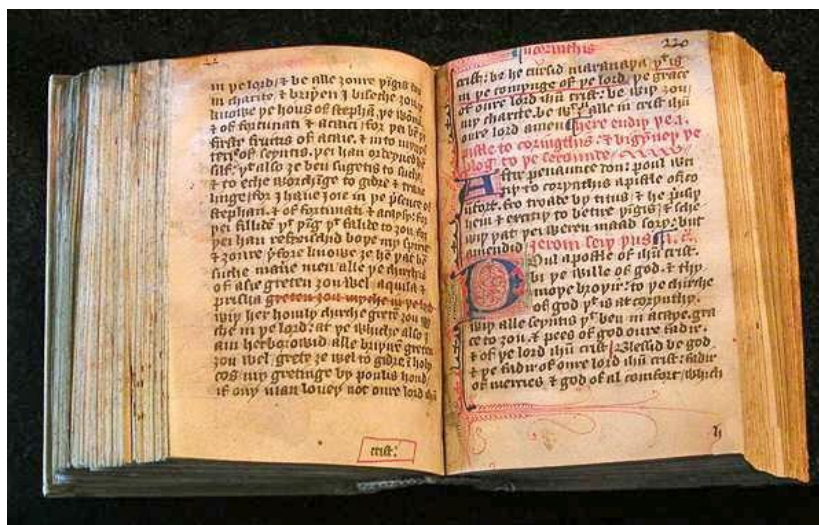 in þe lord / ⁊ be alle ȝoure þigis don
in charite / ⁊ briþen I biseche ȝou / ȝe
knowe þe hous of stephan, þe wom̄
⁊ of fortunati ⁊ acaici / for þei beþ þe
firste fruitis of acaie, ⁊ into mynys
terie of seyntis, þei han ordeyned hē
silf: þᵗ also ȝe ben sugetis to suche
⁊ to eche worchige to gidre ⁊ traue
linge / for I haue ioie in þe p̄sence of
stephan, ⁊ of fortunati ⁊ acaysi: for
þei fillide þᵗ þig þᵗ failide to ȝou, for
þei han refreischid boþe my spirit
⁊ ȝoure þ̄fore knowe ȝe hē þᵗ bē
suche man̄e men alle þe chirchis
of asie greten ȝou wel aquila ⁊
prisca greten ȝou myche in þe lord
wiþ her homly chirche gretē ȝou
che in þe lord: at þe whiche also I
am herborowid alle briþerē greten
ȝou wel, grete ȝe wel to gidre ī holy
cos / my gretinge bi poulis hond /
if ony man loueþ not oure lord ihū
crist:
I corinthis
220
crist: be he cursid maranatha þᵗ is
in þe comynge of þe lord, þe grace
of oure lord ihū crist: be wiþ ȝou
my charite. be wᵗ ȝou alle in crist ihū
oure lord amen here endiþ þe .1.
pistle to corinthis: ⁊ bigynneþ þe
plog to þe secounde
Aftir penaunce don: poul wri
tiþ to corynthis a pistle of co
ūfort, fro troade by titus / ⁊ he p̄isiþ
hem ⁊ excitiþ to betire þigis / ⁊ sche
wiþ þat þei weren maad sory: but
amendid Jerom seiþ þus .i. c̄.
Poul apostle of ihū crist.
bi þe wille of god. ⁊ thy
moþe broþir: to þe chirche
of god þᵗ is at corynthy.
wiþ alle seyntis þᵗ ben in acaye. gra
ce to ȝou. ⁊ pees of god oure fadir.
⁊ of þe lord ihū crist / Blessid be god
⁊ þe fadir of oure lord ihū crist: fadir
of mercies ⁊ god of al comfort / which
h